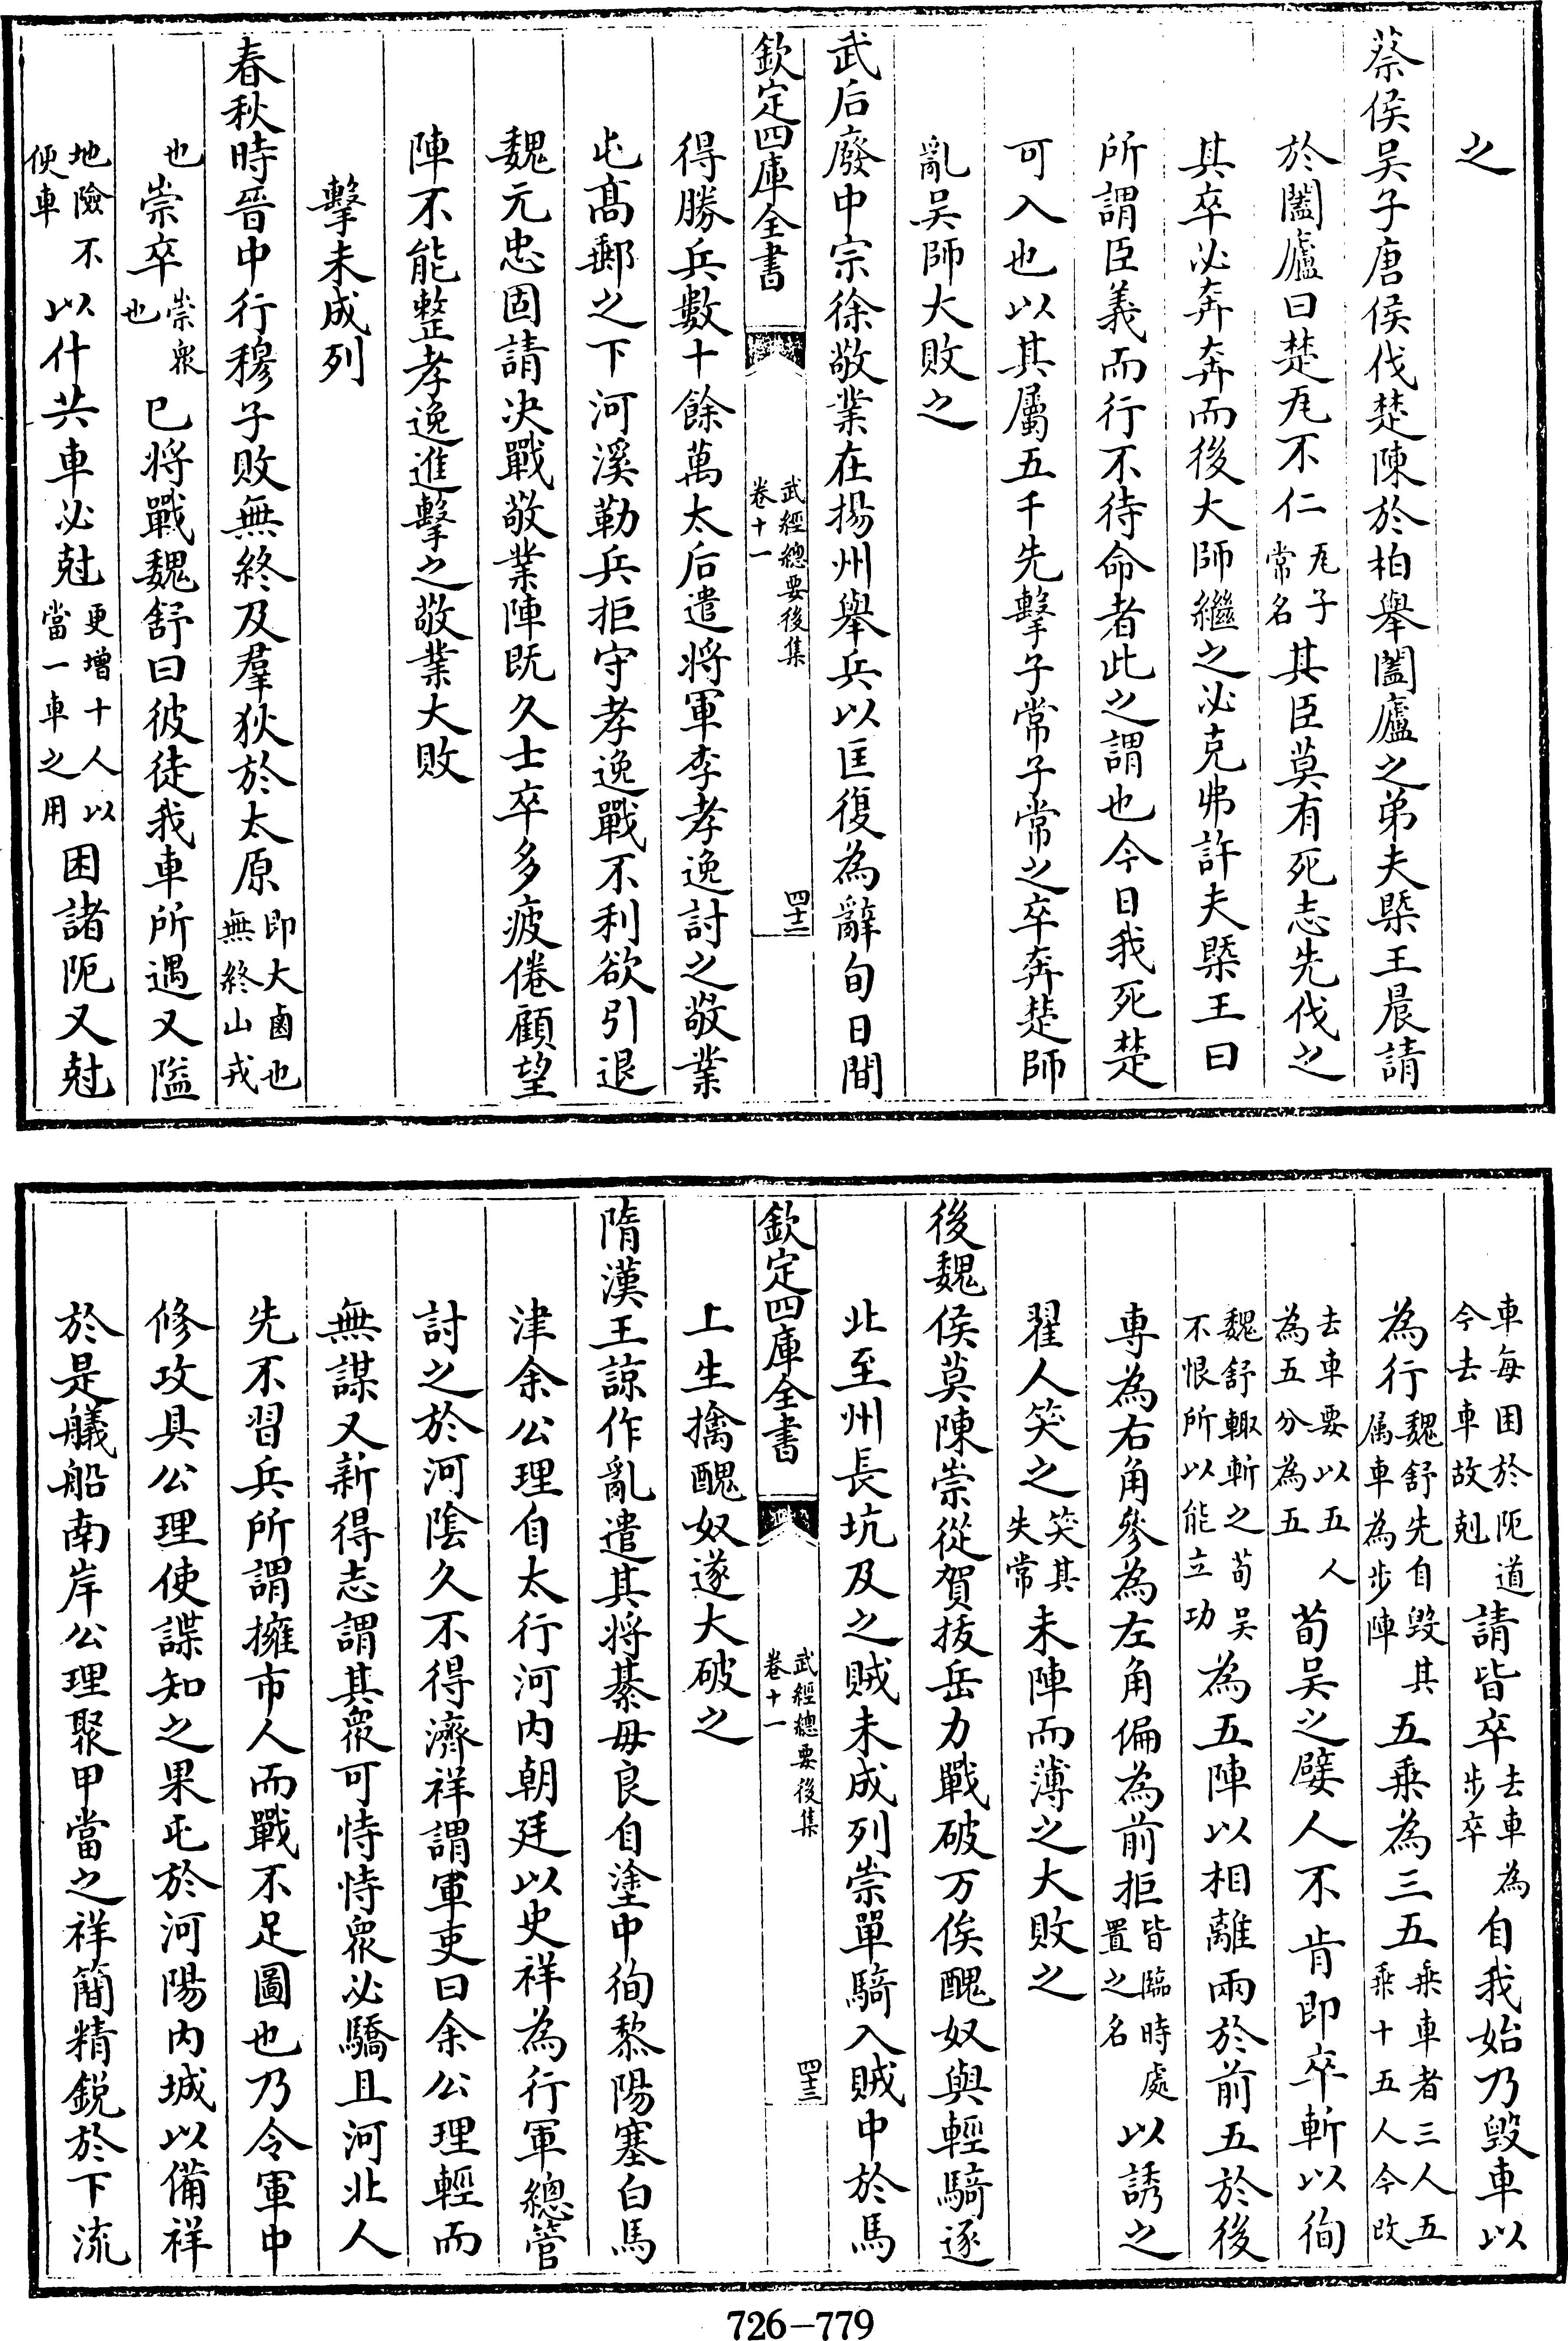 之
蔡侯吴子唐侯伐楚陳於柏舉闔廬之弟夫槩王晨請
於闔廬曰楚尾不仁尾子常名其臣莫有死志先伐之
其卒必奔奔而後大師繼之必克弗許夫槩王曰
所謂臣義而行不待命者此之謂也今日我死楚
可入也以其屬五千先擊子常子常之卒奔楚師
亂吴師大敗之
武后廢中宗徐敬業在揚州舉兵以匡復為辭旬日間
欽定四庫全書 武經總要後集卷十一 四十二
得勝兵數十餘萬太后遣將軍李孝逸討之敬業
屯髙郵之下河溪勒兵拒守孝逸戰不利欲引退
魏元忠固請决戰敬業陣既久士卒多疲倦顧望
陣不能整孝逸進擊之敬業大敗
擊未成列
春秋時晉中行穆子敗無終及羣狄於太原即大鹵也無終山戎
也崇卒崇衆也已將戰魏舒曰彼徒我車所遇又隘
地險不便車以什共車必尅更增十人以當一車之用困諸阨又尅
車每困於阨道今去車故尅請皆卒去車為步卒自我始乃毁車以
為行魏舒先自毁其属車為步陣五乘為三五乘車者三人五乘十五人今改
去車要以五人為五分為五荀吴之嬖人不肯即卒斬以徇
魏舒輙斬之荀吴不恨所以能立功為五陣以相離兩於前五於後
専為右角參為左角偏為前拒皆臨時處置之名以誘之
翟人笑之笑其失常未陣而薄之大敗之
後魏侯莫陳崇從賀拔岳力戰破万俟醜奴與輕騎逐
北至州長坑及之賊未成列崇單騎入賊中於馬
欽定四庫全書 武經總要後集卷十一 四十三
上生擒醜奴遂大破之
隋漢王諒作亂遣其將綦毋良自塗中徇黎陽塞白馬
津余公理自太行河内朝廷以史祥為行軍總管
討之於河隂久不得濟祥謂軍吏曰余公理輕而
無謀又新得志謂其衆可恃恃衆必驕且河北人
先不習兵所謂擁市人而戰不足圖也乃令軍中
修攻具公理使諜知之果屯於河陽内城以備祥
於是艤船南岸公理聚甲當之祥簡精鋭於下流
726-779